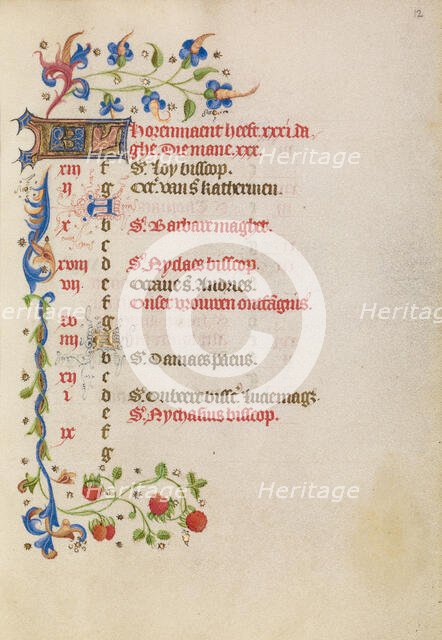 12
KL horenmaent heeft xxxi da
ghe Die mane xxx.
xiii f Sᵉ Loy bisscop.
ii g Octᵉ van Sᵉ kathermen.
A
x b Sᵉ Barbare maghet.
c
xviii d Sᵉ Nyclaes bisscop.
vii e Octaue Sᵉ Andries.
f Onser vrouwen ontfāgenis
xv g
iiii A
b Sᵉ Damaes paeus.
xii c
i d Sᵉ Lucie magꝫ
e Sᵉ Nychasius bisscop.
ix f
g
Heritage
Heritage
Heritage
Heritage
Heritage